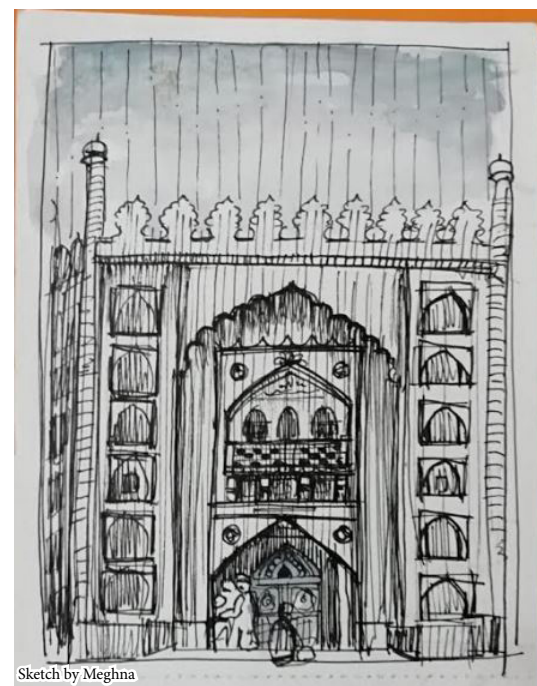 Sketch by Meghna